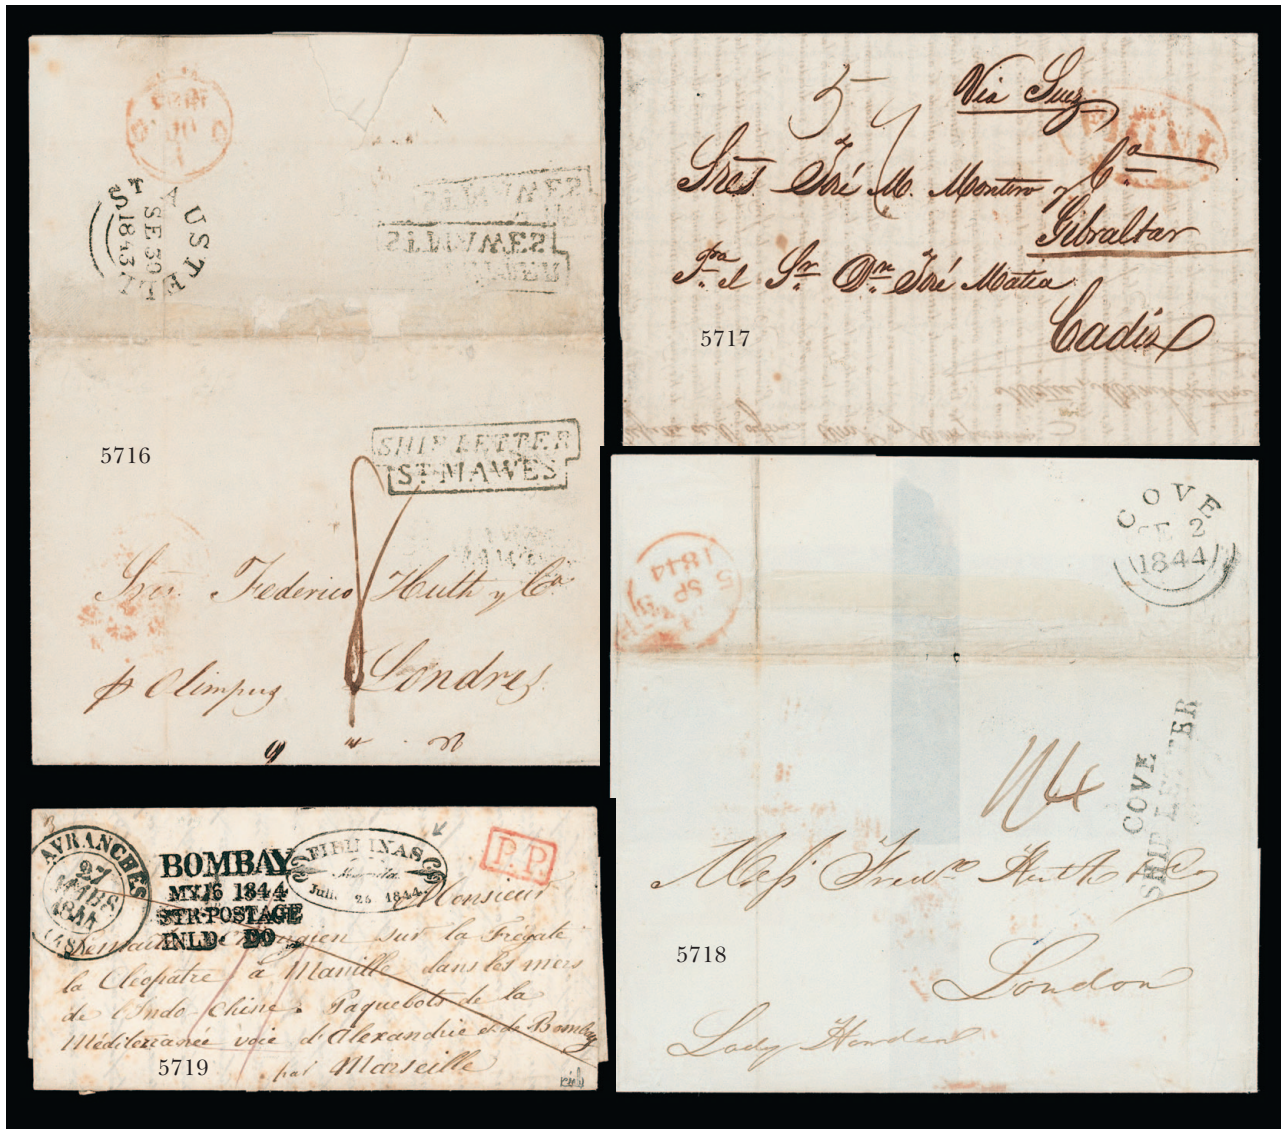 ST AUSTELL
SE 30
1843
ST MAWES
5716
SHIP LETTER
ST MAWES
8
Federico Huth y Ca
Londres
p Olimpus
Via Suez
INDIA
57
Sres José M. Montero y Ca
Gibraltar
Pra el Sr Dn José Matia
Cadiz
5717
COVE
SE 2
1844
5
SP
1844
COVE
SHIP LETTER
1/4
Messs Fredco Huth & Co
London
5718
Lady Howden
AVRANCHES
27
MARS
1844
BOMBAY
MY.16 1844
STR-POSTAGE
INLD. DO
FILIPINAS
Manila
Juli. 25 1844.
P.P.
Monsieur
sur la Frégate
la Cléopatre à Manille dans les mers
de l'Indo-Chine. Paquebots de la
Méditerranée voie d'Alexandrie et de Bombay
par Marseille
5719